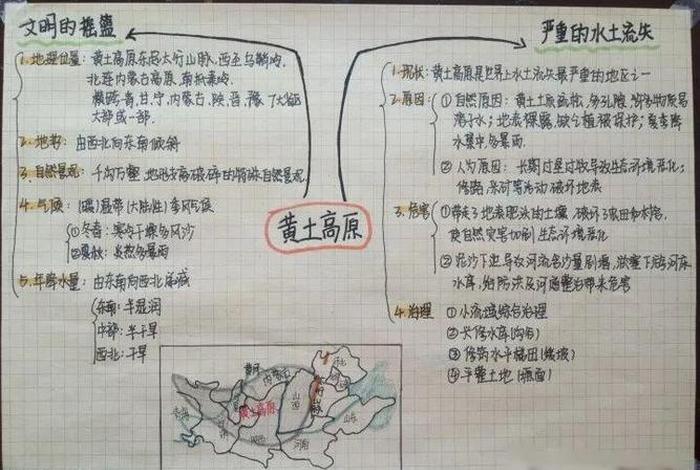 文明的摇篮
1.地理位置：黄土高原东起太行山脉，西至乌鞘岭，
北连内蒙古高原，南抵秦岭。
横跨青、甘、宁、内蒙古、陕、晋、豫7大省区
大部或一部。
2.地势：由西北向东南倾斜
3.自然景观：千沟万壑 地形支离破碎的特殊自然景观
4.气候：(暖)温带(大陆性)季风气候
①冬春：寒冷干燥多风沙
②夏秋：炎热多暴雨
5.年降水量：由东南向西北递减
东南：半湿润
中部：半干旱
西北：干旱
黄土高原
严重的水土流失
1.现状：黄土高原是世界上水土流失最严重的地区之一
2.原因：①自然原因：黄土土质疏松，多孔隙，许多物质易
溶于水；地表裸露，缺乏植被保护；夏季降
水集中，多暴雨。
②人为原因：长期过垦过牧导致生态环境恶化；
修路、采矿等活动破坏地表
3.危害 ①带走了地表肥沃的土壤，破坏了农田和村落，
使自然灾害加剧，生态环境恶化
②泥沙下泄，导致河流含沙量剧增，淤塞下游河床、
水库，给防洪及河道整治带来危害
4.治理 ①小流域综合治理
②长修水库(沟内)
③修筑水平梯田(缓坡)
④平整土地(塬面)
黄河
内蒙古
河北
山西
太行山脉
黄土高原
青海
甘肃
陕西
河南
山东